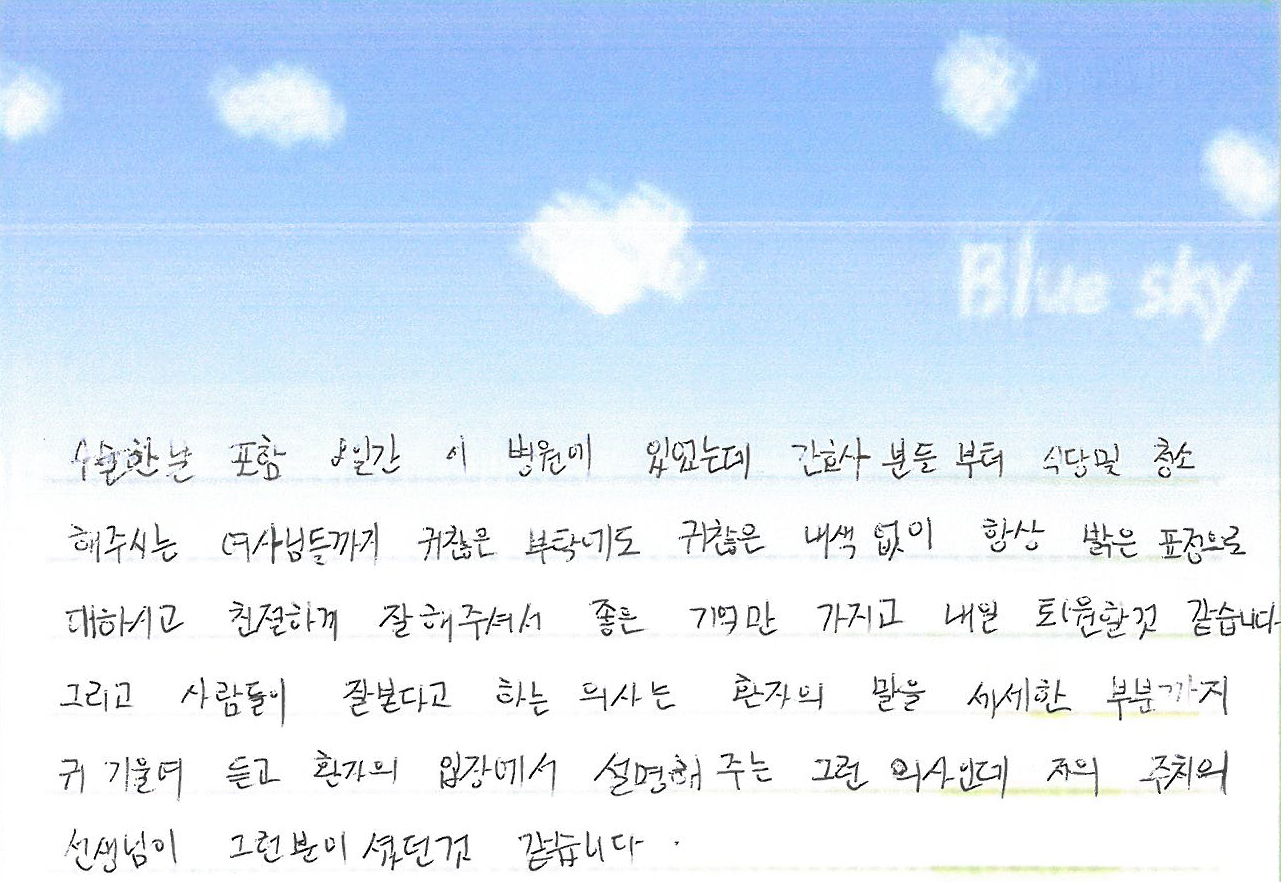 Blue sky
수술한 날 포함 8일간 이 병원에 있었는데 간호사 분들 부터 식당및 청소
해주시는 여사님들까지 귀찮은 부탁에도 귀찮은 내색 없이 항상 밝은 표정으로
대하시고 친절하게 잘해주셔서 좋은 기억만 가지고 내일 퇴원할것 같습니다
그리고 사람들이 잘본다고 하는 의사는 환자의 말을 세세한 부분까지
귀 기울여 듣고 환자의 입장에서 설명해 주는 그런 의사인데 저의 주치의
선생님이 그런분이셨던것 같습니다.